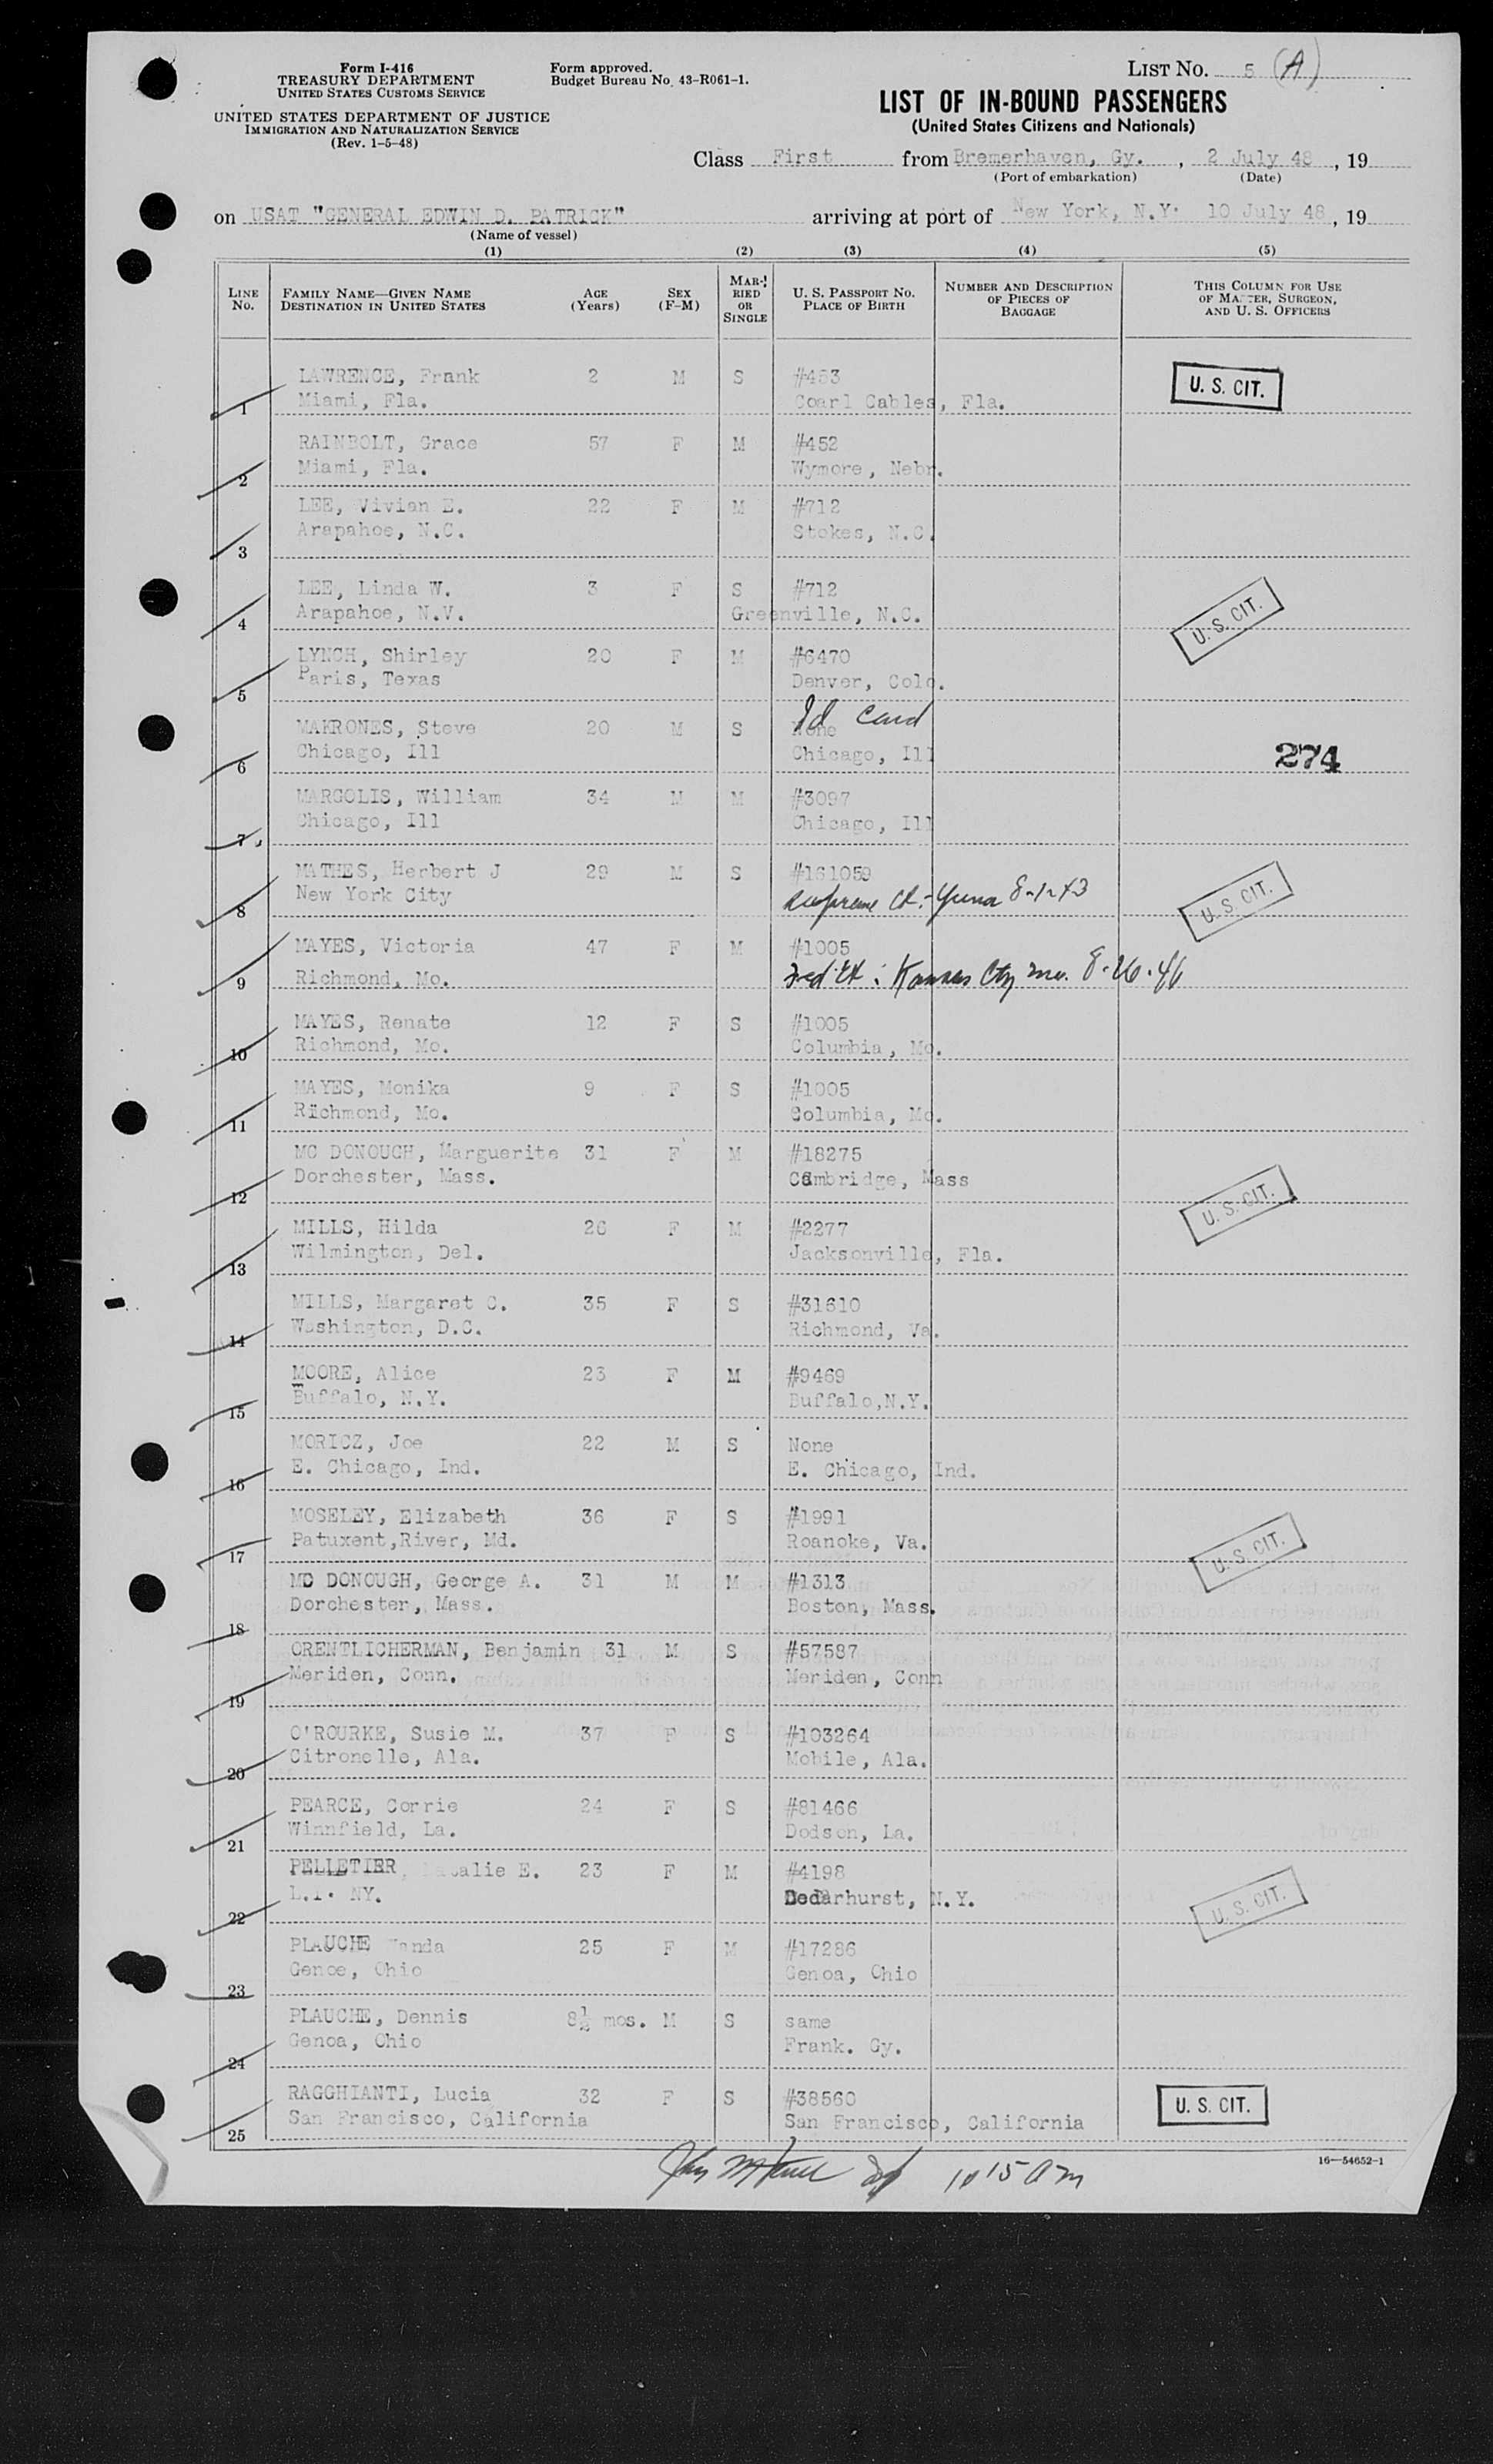 Form I-416
TREASURY DEPARTMENT
UNITED STATES CUSTOMS SERVICE
UNITED STATES DEPARTMENT OF JUSTICE
IMMIGRATION AND NATURALIZATION SERVICE
(Rev. 1-5-48)
Form approved.
Budget Bureau No. 43-R061-1.
LIST No. 5 (A)
LIST OF IN-BOUND PASSENGERS
(United States Citizens and Nationals)
Class First from Bremerhaven, Gy. , 2 July 48 , 19
(Port of embarkation) (Date)
on USAT "GENERAL EDWIN D. PATRICK" arriving at port of New York, N.Y. 10 July 48 , 19
(Name of vessel)
(1) (2) (3) (4) (5)
LINE No. FAMILY NAME—GIVEN NAME DESTINATION IN UNITED STATES AGE (Years) SEX (F-M) MARRIED OR SINGLE U. S. PASSPORT No. PLACE OF BIRTH NUMBER AND DESCRIPTION OF PIECES OF BAGGAGE THIS COLUMN FOR USE OF MASTER, SURGEON, AND U. S. OFFICERS
LAWRENCE, Frank 2 M S #453 U. S. CIT.
1 Miami, Fla. Coarl Cables, Fla.
RAINBOLT, Grace 57 F M #452
2 Miami, Fla. Wymore, Nebr.
LEE, Vivian E. 22 F M #712
3 Arapahoe, N.C. Stokes, N.C.
LEE, Linda W. 3 F S #712
4 Arapahoe, N.V. Greenville, N.C. U. S. CIT.
LYNCH, Shirley 20 F M #6470
5 Paris, Texas Denver, Colo.
Id Card
MAKRONES, Steve 20 M S None
6 Chicago, Ill Chicago, Ill 274
MARGOLIS, William 34 M M #3097
7 Chicago, Ill Chicago, Ill
MATHES, Herbert J 29 M S #161059
8 New York City Supreme Ct. 8-1-43 U. S. CIT.
MAYES, Victoria 47 F M #1005
9 Richmond, Mo. Kansas City Mo. 8-26-46
MAYES, Renate 12 F S #1005
10 Richmond, Mo. Columbia, Mo.
MAYES, Monika 9 F S #1005
11 Richmond, Mo. Columbia, Mo.
MC DONOUCH, Marguerite 31 F M #18275
12 Dorchester, Mass. Cambridge, Mass U. S. CIT.
MILLS, Hilda 26 F M #2277
13 Wilmington, Del. Jacksonville, Fla.
MILLS, Margaret C. 35 F S #31610
14 Washington, D.C. Richmond, Va.
MOORE, Alice 23 F M #9469
15 Buffalo, N.Y. Buffalo,N.Y.
MORICZ, Joe 22 M S None
16 E. Chicago, Ind. E. Chicago, Ind.
MOSELEY, Elizabeth 36 F S #1991
17 Patuxent,River, Md. Roanoke, Va. U. S. CIT.
MC DONOUGH, George A. 31 M M #1313
18 Dorchester, Mass. Boston, Mass.
ORENTLICHERMAN, Benjamin 31 M S #57587
19 Meriden, Conn. Meriden, Conn
O'ROURKE, Susie M. 37 F S #103264
20 Citronelle, Ala. Mobile, Ala.
PEARCE, Corrie 24 F S #81466
21 Winnfield, La. Dodson, La.
PELLETIER, Natalie E. 23 F M #4198
22 L.I. NY. Cedarhurst, N.Y. U. S. CIT.
PLAUCHE Wanda 25 F M #17286
23 Genoe, Ohio Genoa, Ohio
PLAUCHE, Dennis 8½ mos. M S same
24 Genoa, Ohio Frank. Gy.
RAGGHIANTI, Lucia 32 F S #38560
25 San Francisco, California San Francisco, California U. S. CIT.
10 15 am
16—54652-1